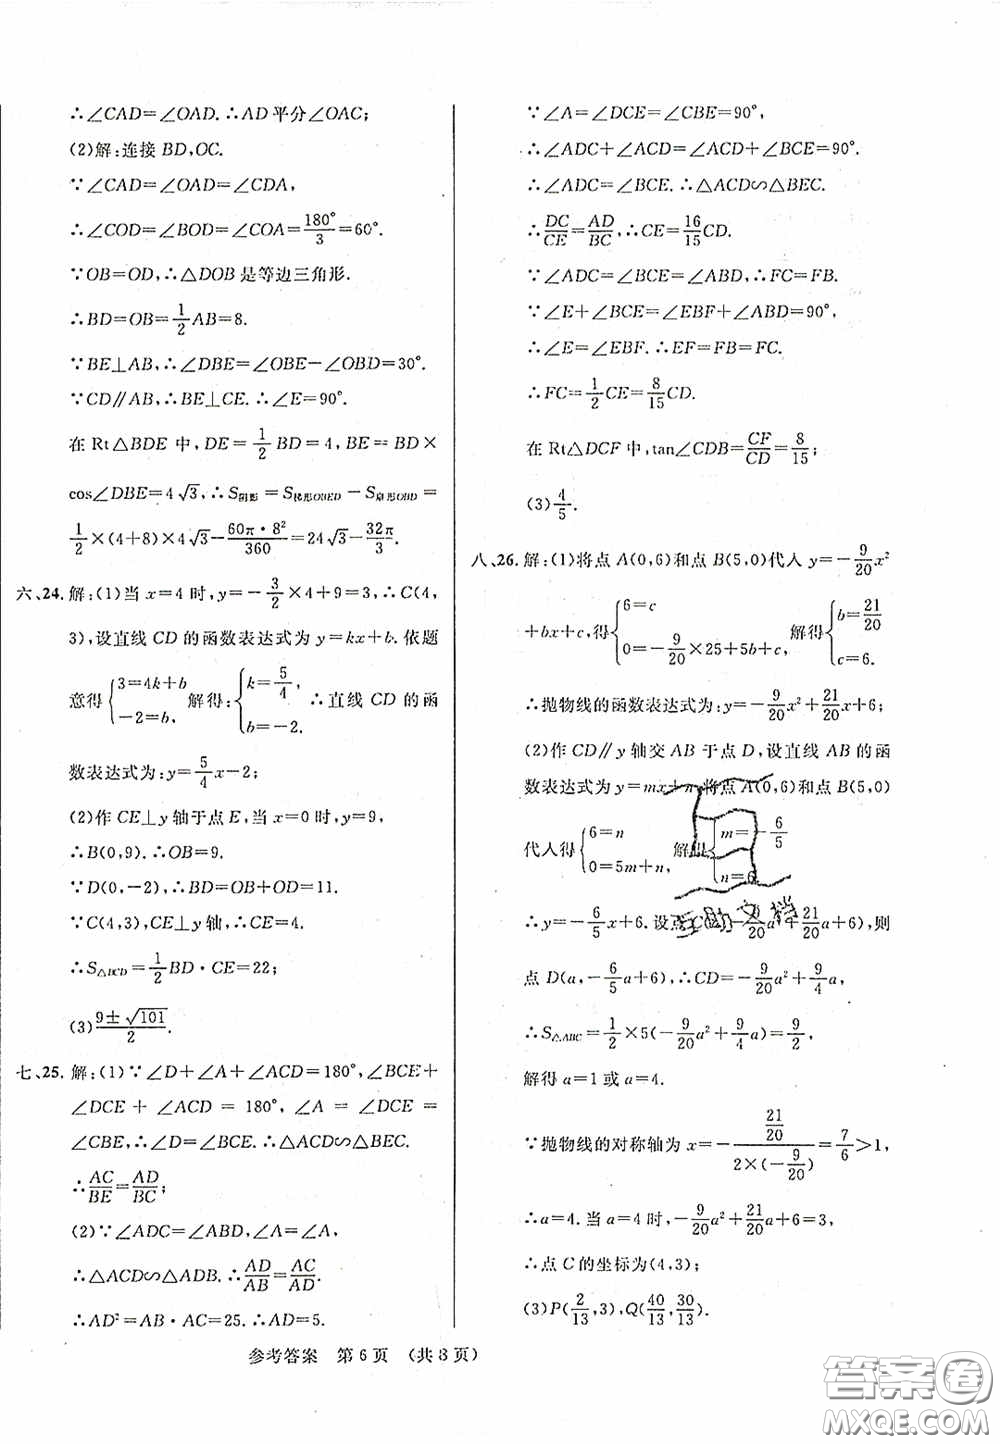 ∴∠CAD=∠OAD.∴AD平分∠OAC;
(2)解:连接BD,OC.
∵∠CAD=∠OAD=∠CDA,
∴∠COD=∠BOD=∠COA=180°/3=60°.
∵OB=OD,∴△DOB是等边三角形.
∴BD=OB=1/2AB=8.
∵BE⊥AB,∴∠DBE=∠OBE-∠OBD=30°.
∵CD∥AB,∴BE⊥CE.∴∠E=90°.
在Rt△BDE中,DE=1/2BD=4,BE=BD×
cos∠DBE=4√3,∴S阴影=S梯形OBED-S扇形OBD=
1/2×(4+8)×4√3-60π·8²/360=24√3-32π/3.
六、24.解:(1)当x=4时,y=-3/2×4+9=3,∴C(4,
3),设直线CD的函数表达式为y=kx+b.依题
意得{3=4k+b -2=b, 解得:{k=5/4, b=-2. ∴直线CD的函
数表达式为:y=5/4x-2;
(2)作CE⊥y轴于点E,当x=0时,y=9,
∴B(0,9).∴OB=9.
∵D(0,-2),∴BD=OB+OD=11.
∵C(4,3),CE⊥y轴,∴CE=4.
∴S△BCD=1/2BD·CE=22;
(3)(9±√101)/2.
七、25.解:(1)∵∠D+∠A+∠ACD=180°,∠BCE+
∠DCE+∠ACD=180°,∠A=∠DCE=
∠CBE,∴∠D=∠BCE.∴△ACD∽△BEC.
∴AC/BE=AD/BC;
(2)∵∠ADC=∠ABD,∠A=∠A,
∴△ACD∽△ADB.∴AD/AB=AC/AD.
∴AD²=AB·AC=25.∴AD=5.
∵∠A=∠DCE=∠CBE=90°,
∴∠ADC+∠ACD=∠ACD+∠BCE=90°.
∴∠ADC=∠BCE.∴△ACD∽△BEC.
∴DC/CE=AD/BC,∴CE=16/15CD.
∵∠ADC=∠BCE=∠ABD,∴FC=FB.
∵∠E+∠BCE=∠EBF+∠ABD=90°,
∴∠E=∠EBF.∴EF=FB=FC.
∴FC=1/2CE=8/15CD.
在Rt△DCF中,tan∠CDB=CF/CD=8/15;
(3)4/5.
八、26.解:(1)将点A(0,6)和点B(5,0)代入y=-9/20x²
+bx+c,得{6=c 0=-9/20×25+5b+c, 解得{b=21/20 c=6.
∴抛物线的函数表达式为:y=-9/20x²+21/20x+6;
(2)作CD∥y轴交AB于点D,设直线AB的函
数表达式为y=mx+n,将点A(0,6)和点B(5,0)
代入得{6=n 0=5m+n, 解得{m=-6/5 n=6.
∴y=-6/5x+6.设点C(a,-9/20a²+21/20a+6),则
点D(a,-6/5a+6),∴CD=-9/20a²+9/4a,
∴S△ABC=1/2×5(-9/20a²+9/4a)=-9/8a²+45/8a=9/2,
解得a=1或a=4.
∵抛物线的对称轴为x=-(21/20)/(2×(-9/20))=7/6>1,
∴a=4.当a=4时,-9/20a²+21/20a+6=3,
∴点C的坐标为(4,3);
(3)P(2/13,3),Q(40/13,30/13).
参考答案 第6页 (共8页)
答案圈
MXQE.COM